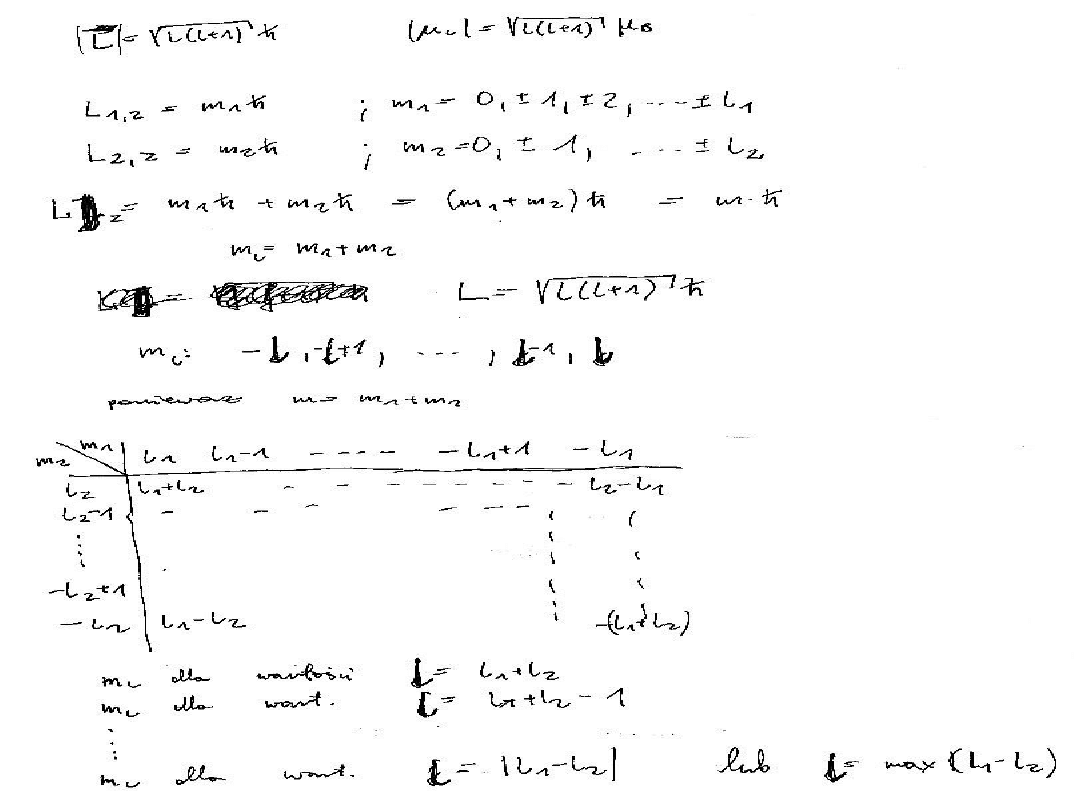 |L| = √L(L+1) ħ |μL| = √L(L+1) μB
L1,z = m1ħ ; m1 = 0, ±1, ±2, ... ±L1
L2,z = m2ħ ; m2 = 0, ±1, ... ±L2
Lz = m1ħ + m2ħ = (m1+m2)ħ = m·ħ
mL = m1+m2
L = √L(L+1) ħ
mL: -L, -L+1, ... , L-1, L
ponieważ m = m1+m2
m2 m1 L1 L1-1 ---- -L1+1 -L1
L2 L1+L2 - - - - - - - - L2-L1
L2-1 - - - - - - -
⋮
-L2+1
-L2 L1-L2 -(L1+L2)
mL dla wartości L = L1+L2
mL dla wart. L = L1+L2-1
⋮
mL dla wart. L = |L1-L2| lub L = max{L1-L2)